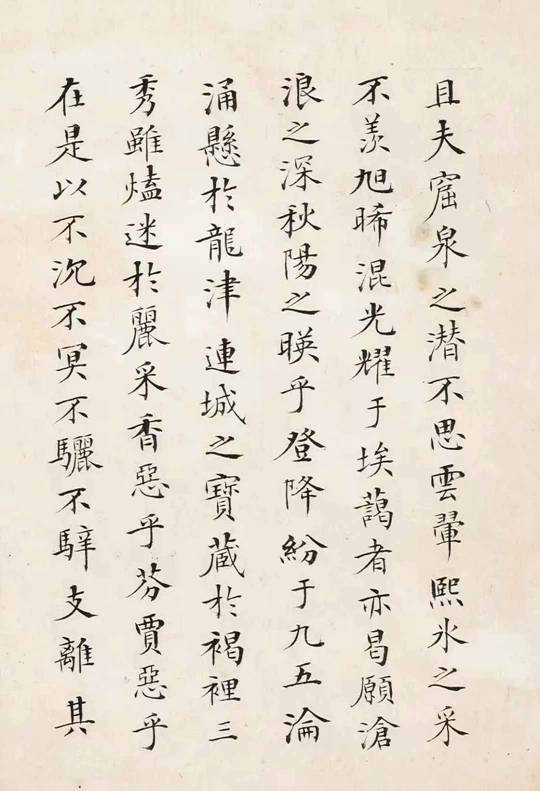 且夫窟泉之潜不思雲翬熙氷之采
不羨旭晞混光耀于埃藹者亦曷願滄
浪之深秋陽之暎乎登降紛于九五淪
涌懸於龍津連城之寶藏於褐裡三
秀雖熆迷於麗采香惡乎芬賈惡乎
在是以不沉不冥不驪不騂支離其